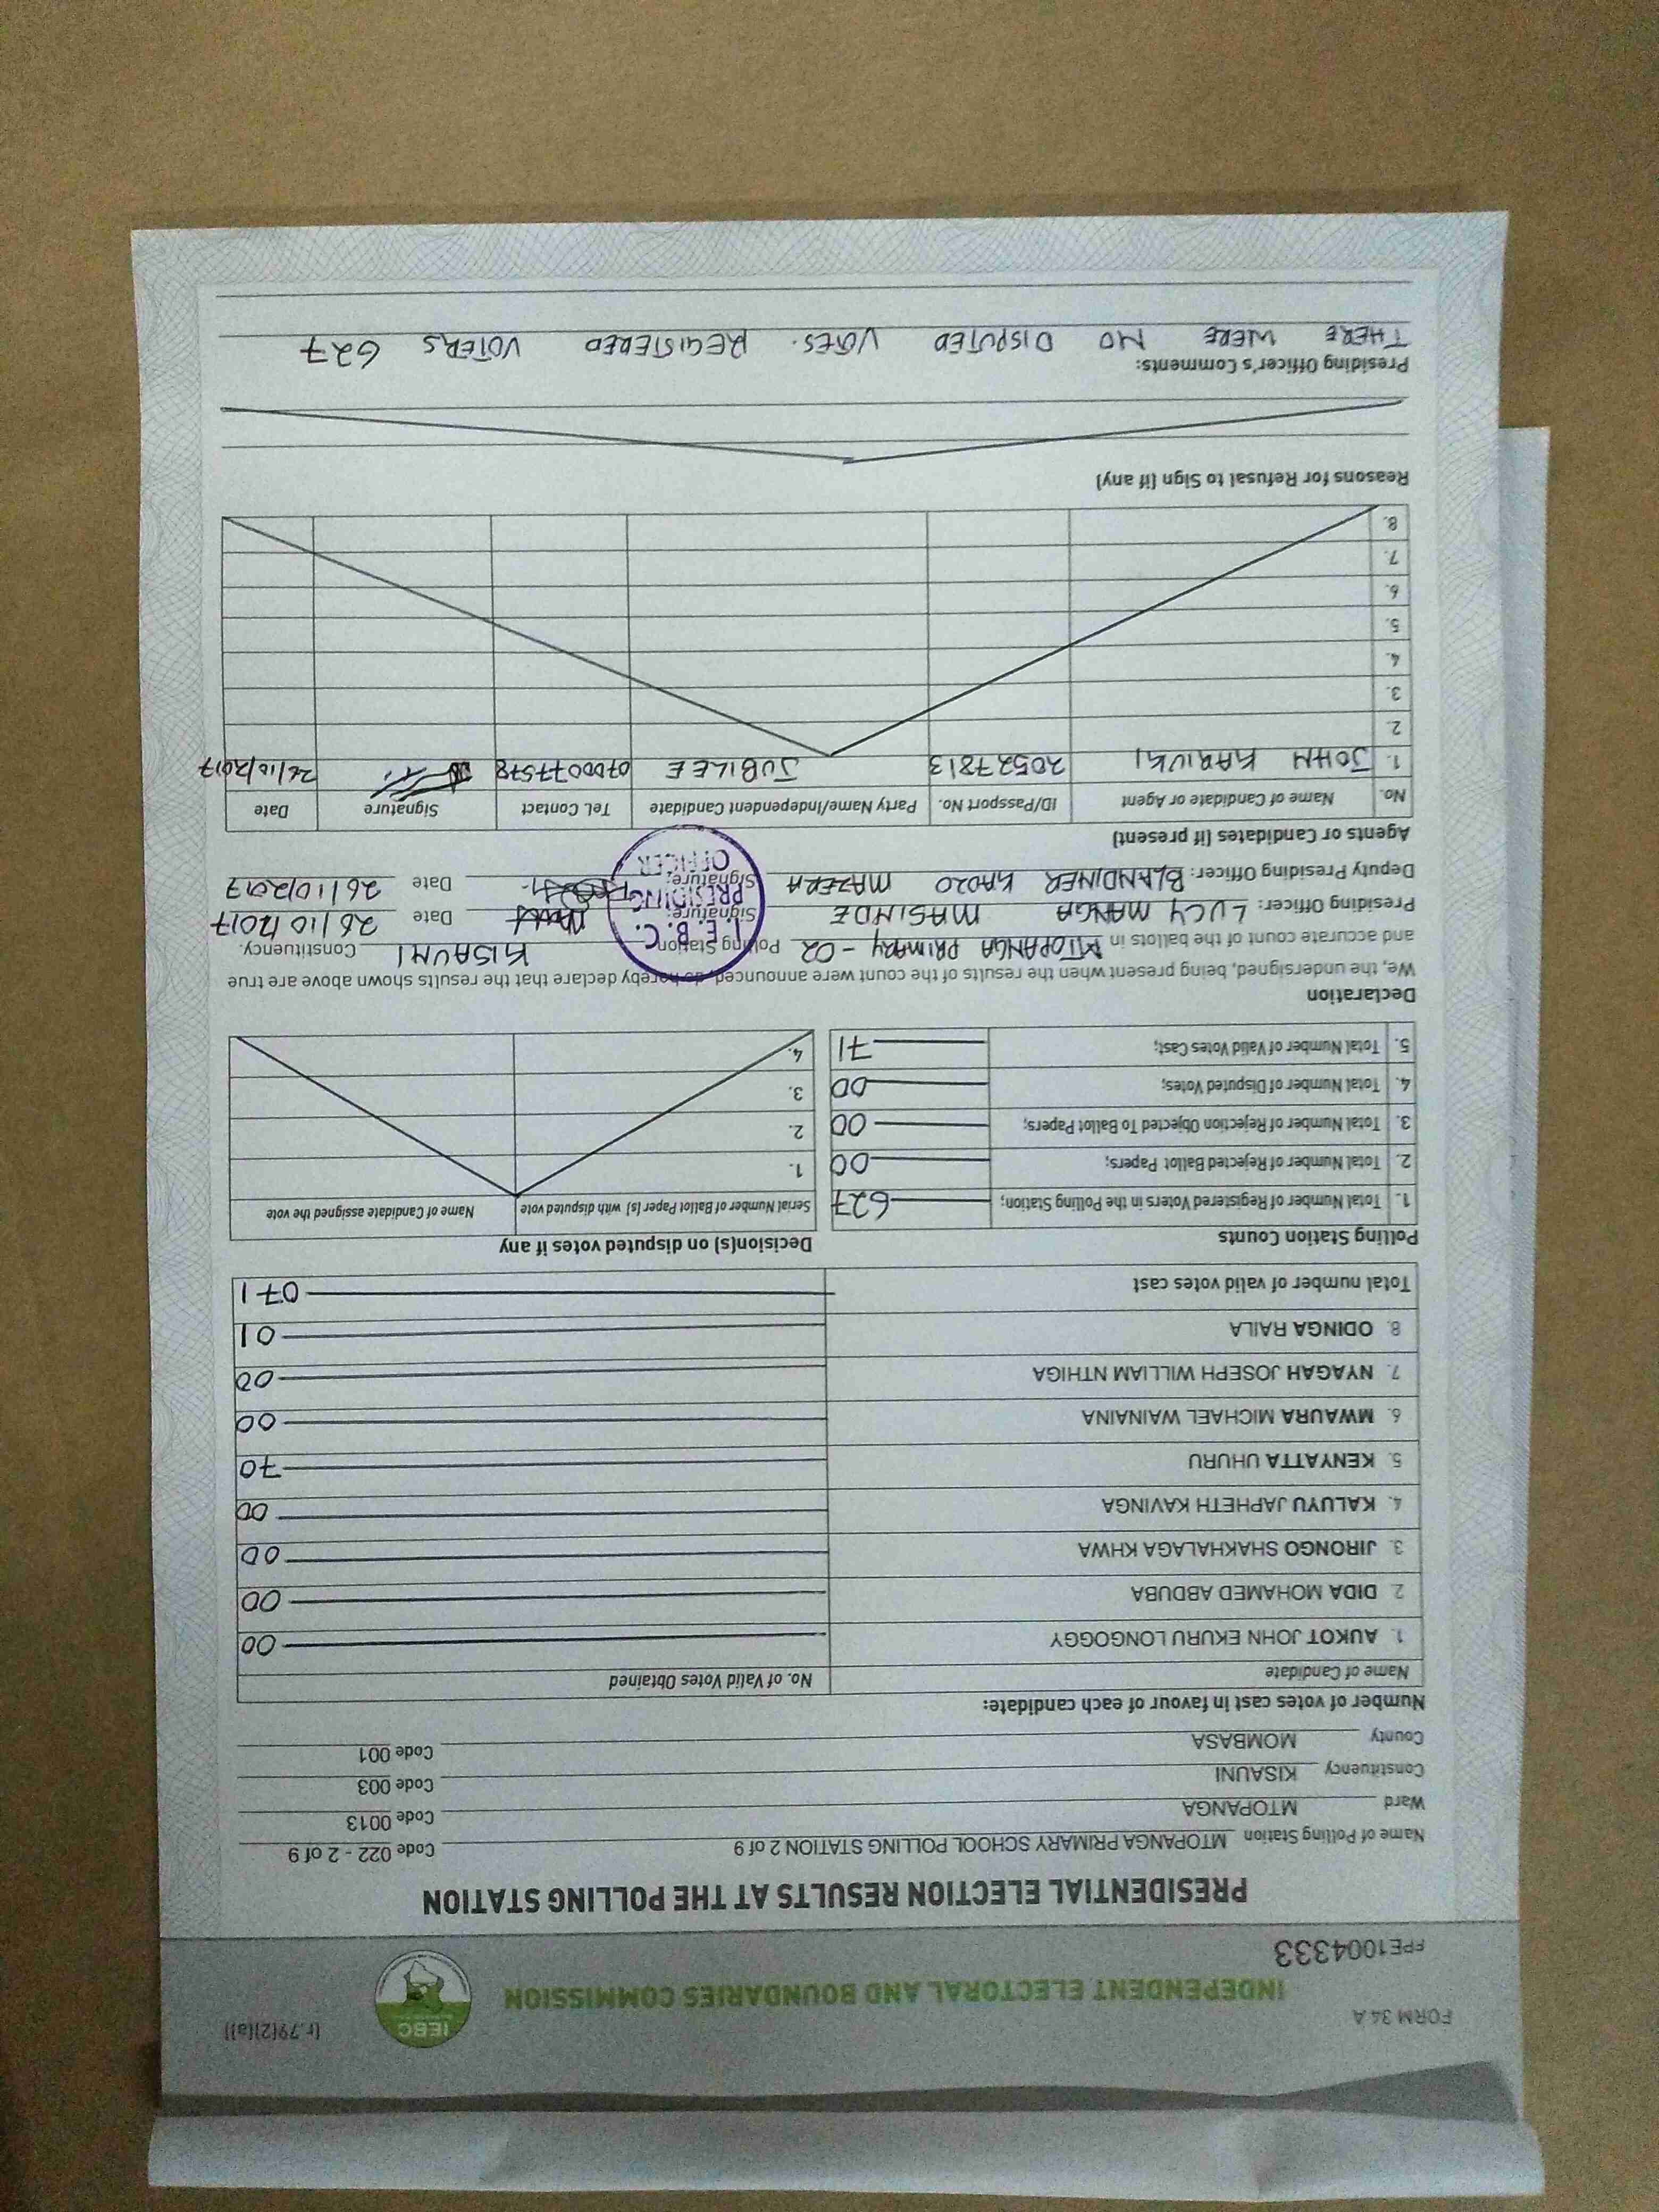 FORM 34 A
(r.79(2)(a))
INDEPENDENT ELECTORAL AND BOUNDARIES COMMISSION
IEBC
FPE1004333
PRESIDENTIAL ELECTION RESULTS AT THE POLLING STATION
Name of Polling Station MTOPANGA PRIMARY SCHOOL POLLING STATION 2 of 9 Code 022 - 2 of 9
Ward MTOPANGA Code 0013
Constituency KISAUNI Code 003
County MOMBASA Code 001
Number of votes cast in favour of each candidate:
Name of Candidate No. of Valid Votes Obtained
1. AUKOT JOHN EKURU LONGOGGY 00
2 DIDA MOHAMED ABDUBA 00
3. JIRONGO SHAKHALAGA KHWA 00
4. KALUYU JAPHETH KAVINGA 00
5. KENYATTA UHURU 70
6. MWAURA MICHAEL WAINAINA 00
7 NYAGAH JOSEPH WILLIAM NTHIGA 00
8. ODINGA RAILA 01
Total number of valid votes cast 071
Polling Station Counts
1. Total Number of Registered Voters in the Polling Station; 627
2. Total Number of Rejected Ballot Papers; 00
3. Total Number of Rejection Objected To Ballot Papers; 00
4. Total Number of Disputed Votes; 00
5. Total Number of Valid Votes Cast; 71
Decision(s) on disputed votes if any
Serial Number of Ballot Paper (s) with disputed vote Name of Candidate assigned the vote
1.
2.
3.
4.
Declaration
We, the undersigned, being present when the results of the count were announced, do hereby declare that the results shown above are true
and accurate count of the ballots in MTOPANGA PRIMARY - 02 Polling Station KISAUNI Constituency.
Presiding Officer: LUCY MANGA MASINDE Signature: Date 26/10/2017
Deputy Presiding Officer: BLANDINER KADZO MAZERA Signature: Date 26/10/2017
I.E.B.C.
PRESIDING
OFFICER
Agents or Candidates (if present)
No. Name of Candidate or Agent ID/Passport No. Party Name/Independent Candidate Tel. Contact Signature Date
1. JOHN KARIUKI 20527813 JUBILEE 0700077578 26/10/2017
2.
3.
4.
5.
6.
7.
8.
Reasons for Refusal to Sign (if any)
Presiding Officer's Comments:
THERE WERE NO DISPUTED VOTES. REGISTERED VOTERS 627